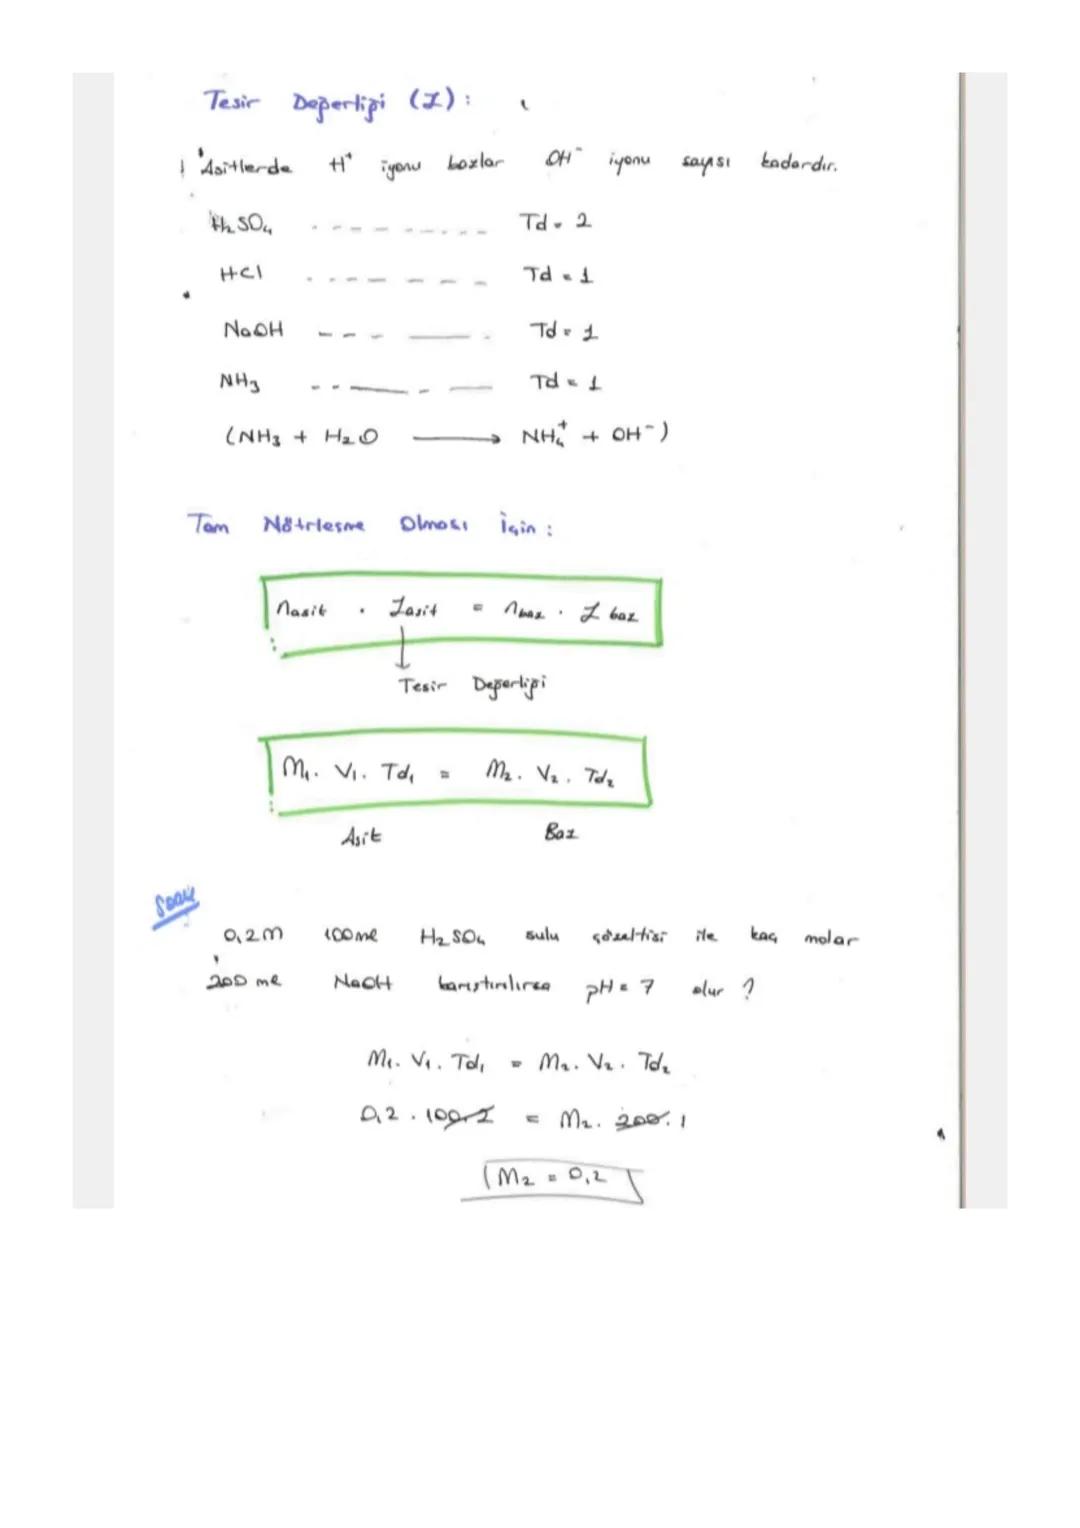 Tesir Değerliği (Z):
Asitlerde H⁺ iyonu bazlar OH⁻ iyonu sayısı kadardır.
H₂SO₄ --------- Td = 2
HCl --------- Td = 1
NaOH --- --- - Td = 1
NH₃ ------ Td = 1
(NH₃ + H₂O → NH₄⁺ + OH⁻)
Tam Nötrleşme Olması İçin:
nasit . Zasit = nbaz . Z baz
Tesir Değerliği
M₁. V₁. Td₁ = M₂. V₂. Td₂
Asit Baz
Soru
0,2M 100ml H₂SO₄ sulu çözeltisi ile kaç molar
200 ml NaOH karıştırılırsa pH = 7 olur ?
M₁. V₁. Td₁ = M₂. V₂. Td₂
0,2 . 100.2 = M₂. 200.1
M₂ = 0,2